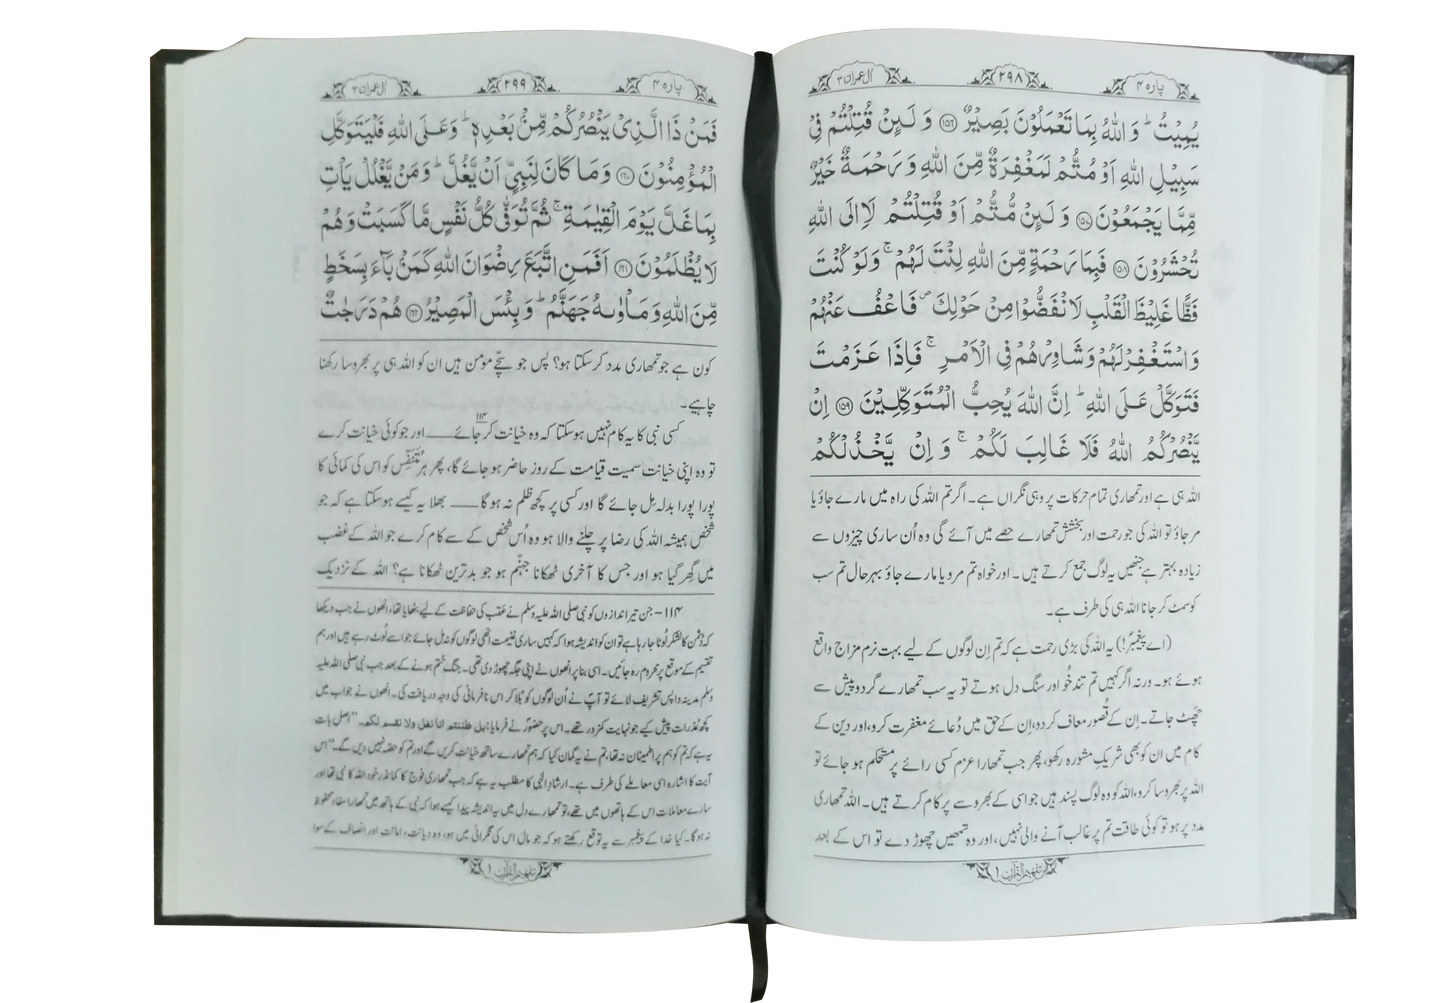 پارہ ۴ ۲۹۸ آل عمران ۳
يُمِيْتُ ؕ وَ اللّٰهُ بِمَا تَعْمَلُوْنَ بَصِيْرٌ ﴿۱۵۶﴾ وَ لَىِٕنْ قُتِلْتُمْ فِيْ
سَبِيْلِ اللّٰهِ اَوْ مُتُّمْ لَمَغْفِرَةٌ مِّنَ اللّٰهِ وَ رَحْمَةٌ خَيْرٌ
مِّمَّا يَجْمَعُوْنَ ﴿۱۵۷﴾ وَ لَىِٕنْ مُّتُّمْ اَوْ قُتِلْتُمْ لَاۡاِلَى اللّٰهِ
تُحْشَرُوْنَ ﴿۱۵۸﴾ فَبِمَا رَحْمَةٍ مِّنَ اللّٰهِ لِنْتَ لَهُمْ ۚ وَ لَوْ كُنْتَ
فَظًّا غَلِيْظَ الْقَلْبِ لَانْفَضُّوْا مِنْ حَوْلِكَ ۪ فَاعْفُ عَنْهُمْ
وَ اسْتَغْفِرْ لَهُمْ وَ شَاوِرْهُمْ فِي الْاَمْرِ ۚ فَاِذَا عَزَمْتَ
فَتَوَكَّلْ عَلَى اللّٰهِ ؕ اِنَّ اللّٰهَ يُحِبُّ الْمُتَوَكِّلِيْنَ ﴿۱۵۹﴾ اِنْ
يَّنْصُرْكُمُ اللّٰهُ فَلَا غَالِبَ لَكُمْ ۚ وَ اِنْ يَّخْذُلْكُمْ
اللہ ہی ہے اور تمھاری تمام حرکات پر وہی نگراں ہے۔ اگر تم اللہ کی راہ میں مارے جاؤ یا
مر جاؤ تو اللہ کی جو رحمت اور بخشش تمھارے حصے میں آئے گی وہ اُن ساری چیزوں سے
زیادہ بہتر ہے جنھیں یہ لوگ جمع کرتے ہیں۔ اور خواہ تم مرو یا مارے جاؤ بہرحال تم سب
کو سمٹ کر جانا اللہ ہی کی طرف ہے۔
(اے پیغمبرؐ!) یہ اللہ کی بڑی رحمت ہے کہ تم اِن لوگوں کے لیے بہت نرم مزاج واقع
ہوئے ہو۔ ورنہ اگر کہیں تم تند خُو اور سنگ دل ہوتے تو یہ سب تمھارے گردو پیش سے
چھٹ جاتے۔ اِن کے قصور معاف کر دو، اِن کے حق میں دُعائے مغفرت کرو، اور دین کے
کام میں ان کو بھی شریکِ مشورہ رکھو، پھر جب تمھارا عزم کسی رائے پر مستحکم ہو جائے تو
اللہ پر بھروسا کرو، اللہ کو وہ لوگ پسند ہیں جو اسی کے بھروسے پر کام کرتے ہیں۔ اللہ تمھاری
مدد پر ہو تو کوئی طاقت تم پر غالب آنے والی نہیں، اور وہ تمھیں چھوڑ دے تو اس کے بعد
تفہیم القرآن ۱
پارہ ۴ ۲۹۹ آل عمران ۳
فَمَنْ ذَا الَّذِيْ يَنْصُرُكُمْ مِّنْۢ بَعْدِهٖ ؕ وَ عَلَى اللّٰهِ فَلْيَتَوَكَّلِ
الْمُؤْمِنُوْنَ ﴿۱۶۰﴾ وَ مَا كَانَ لِنَبِيٍّ اَنْ يَّغُلَّ ؕ وَ مَنْ يَّغْلُلْ يَاْتِ
بِمَا غَلَّ يَوْمَ الْقِيٰمَةِ ۚ ثُمَّ تُوَفّٰى كُلُّ نَفْسٍ مَّا كَسَبَتْ وَ هُمْ
لَا يُظْلَمُوْنَ ﴿۱۶۱﴾ اَفَمَنِ اتَّبَعَ رِضْوَانَ اللّٰهِ كَمَنْۢ بَآءَ بِسَخَطٍ
مِّنَ اللّٰهِ وَ مَاْوٰىهُ جَهَنَّمُ ؕ وَ بِئْسَ الْمَصِيْرُ ﴿۱۶۲﴾ هُمْ دَرَجٰتٌ
کون ہے جو تمھاری مدد کر سکتا ہو؟ پس جو سچّے مومن ہیں ان کو اللہ ہی پر بھروسا رکھنا
چاہیے۔
کسی نبی کا یہ کام نہیں ہو سکتا کہ وہ خیانت کر جائے ۱۱۴ ـــــ اور جو کوئی خیانت کرے
تو وہ اپنی خیانت سمیت قیامت کے روز حاضر ہو جائے گا، پھر ہر مُتَنَفِّس کو اس کی کمائی کا
پورا پورا بدلہ مِل جائے گا اور کسی پر کچھ ظلم نہ ہو گا ـــــ بھلا یہ کیسے ہو سکتا ہے کہ جو
شخص ہمیشہ اللہ کی رضا پر چلنے والا ہو وہ اُس شخص کے سے کام کرے جو اللہ کے غضب
میں گھِر گیا ہو اور جس کا آخری ٹھکانا جہنّم ہو جو بدترین ٹھکانا ہے؟ اللہ کے نزدیک
۱۱۴- جن تیر اندازوں کو نبی صلی اللہ علیہ وسلم نے عقب کی حفاظت کے لیے بٹھایا تھا، انھوں نے جب دیکھا
کہ دشمن کا لشکر لُوٹا جا رہا ہے تو ان کو اندیشہ ہوا کہ کہیں ساری غنیمت انھی لوگوں کو نہ مل جائے جو اسے لُوٹ رہے ہیں اور ہم
تقسیم کے موقع پر محروم رہ جائیں۔ اسی بنا پر انھوں نے اپنی جگہ چھوڑ دی تھی۔ جنگ ختم ہونے کے بعد جب نبی صلی اللہ علیہ
وسلم مدینہ واپس تشریف لائے تو آپؐ نے اُن لوگوں کو بُلا کر اس نافرمانی کی وجہ دریافت کی۔ انھوں نے جواب میں
کچھ عُذرات پیش کیے جو نہایت کمزور تھے۔ اس پر حضورؐ نے فرمایا: بل ظننتم انا نغل ولا نقسم لکم۔ "اصل بات
یہ ہے کہ تم کو ہم پر اطمینان نہ تھا، تم نے یہ گمان کیا کہ ہم تمھارے ساتھ خیانت کریں گے اور تم کو حصّہ نہیں دیں گے۔" اس
آیت کا اشارہ اسی معاملے کی طرف ہے۔ ارشادِ الٰہی کا مطلب یہ ہے کہ جب تمھاری فوج کا کمانڈر خود اللہ کا نبی تھا اور
سارے معاملات اس کے ہاتھوں میں تھے، تو تمھارے دل میں یہ اندیشہ پیدا کیسے ہوا کہ نبی کے ہاتھ میں تمھارا مفاد محفوظ
نہ ہو گا۔ کیا خدا کے پیغمبر سے یہ توقع رکھتے ہو کہ جو مال اس کی نگرانی میں ہو، وہ دیانت، امانت اور انصاف کے سوا
تفہیم القرآن ۱